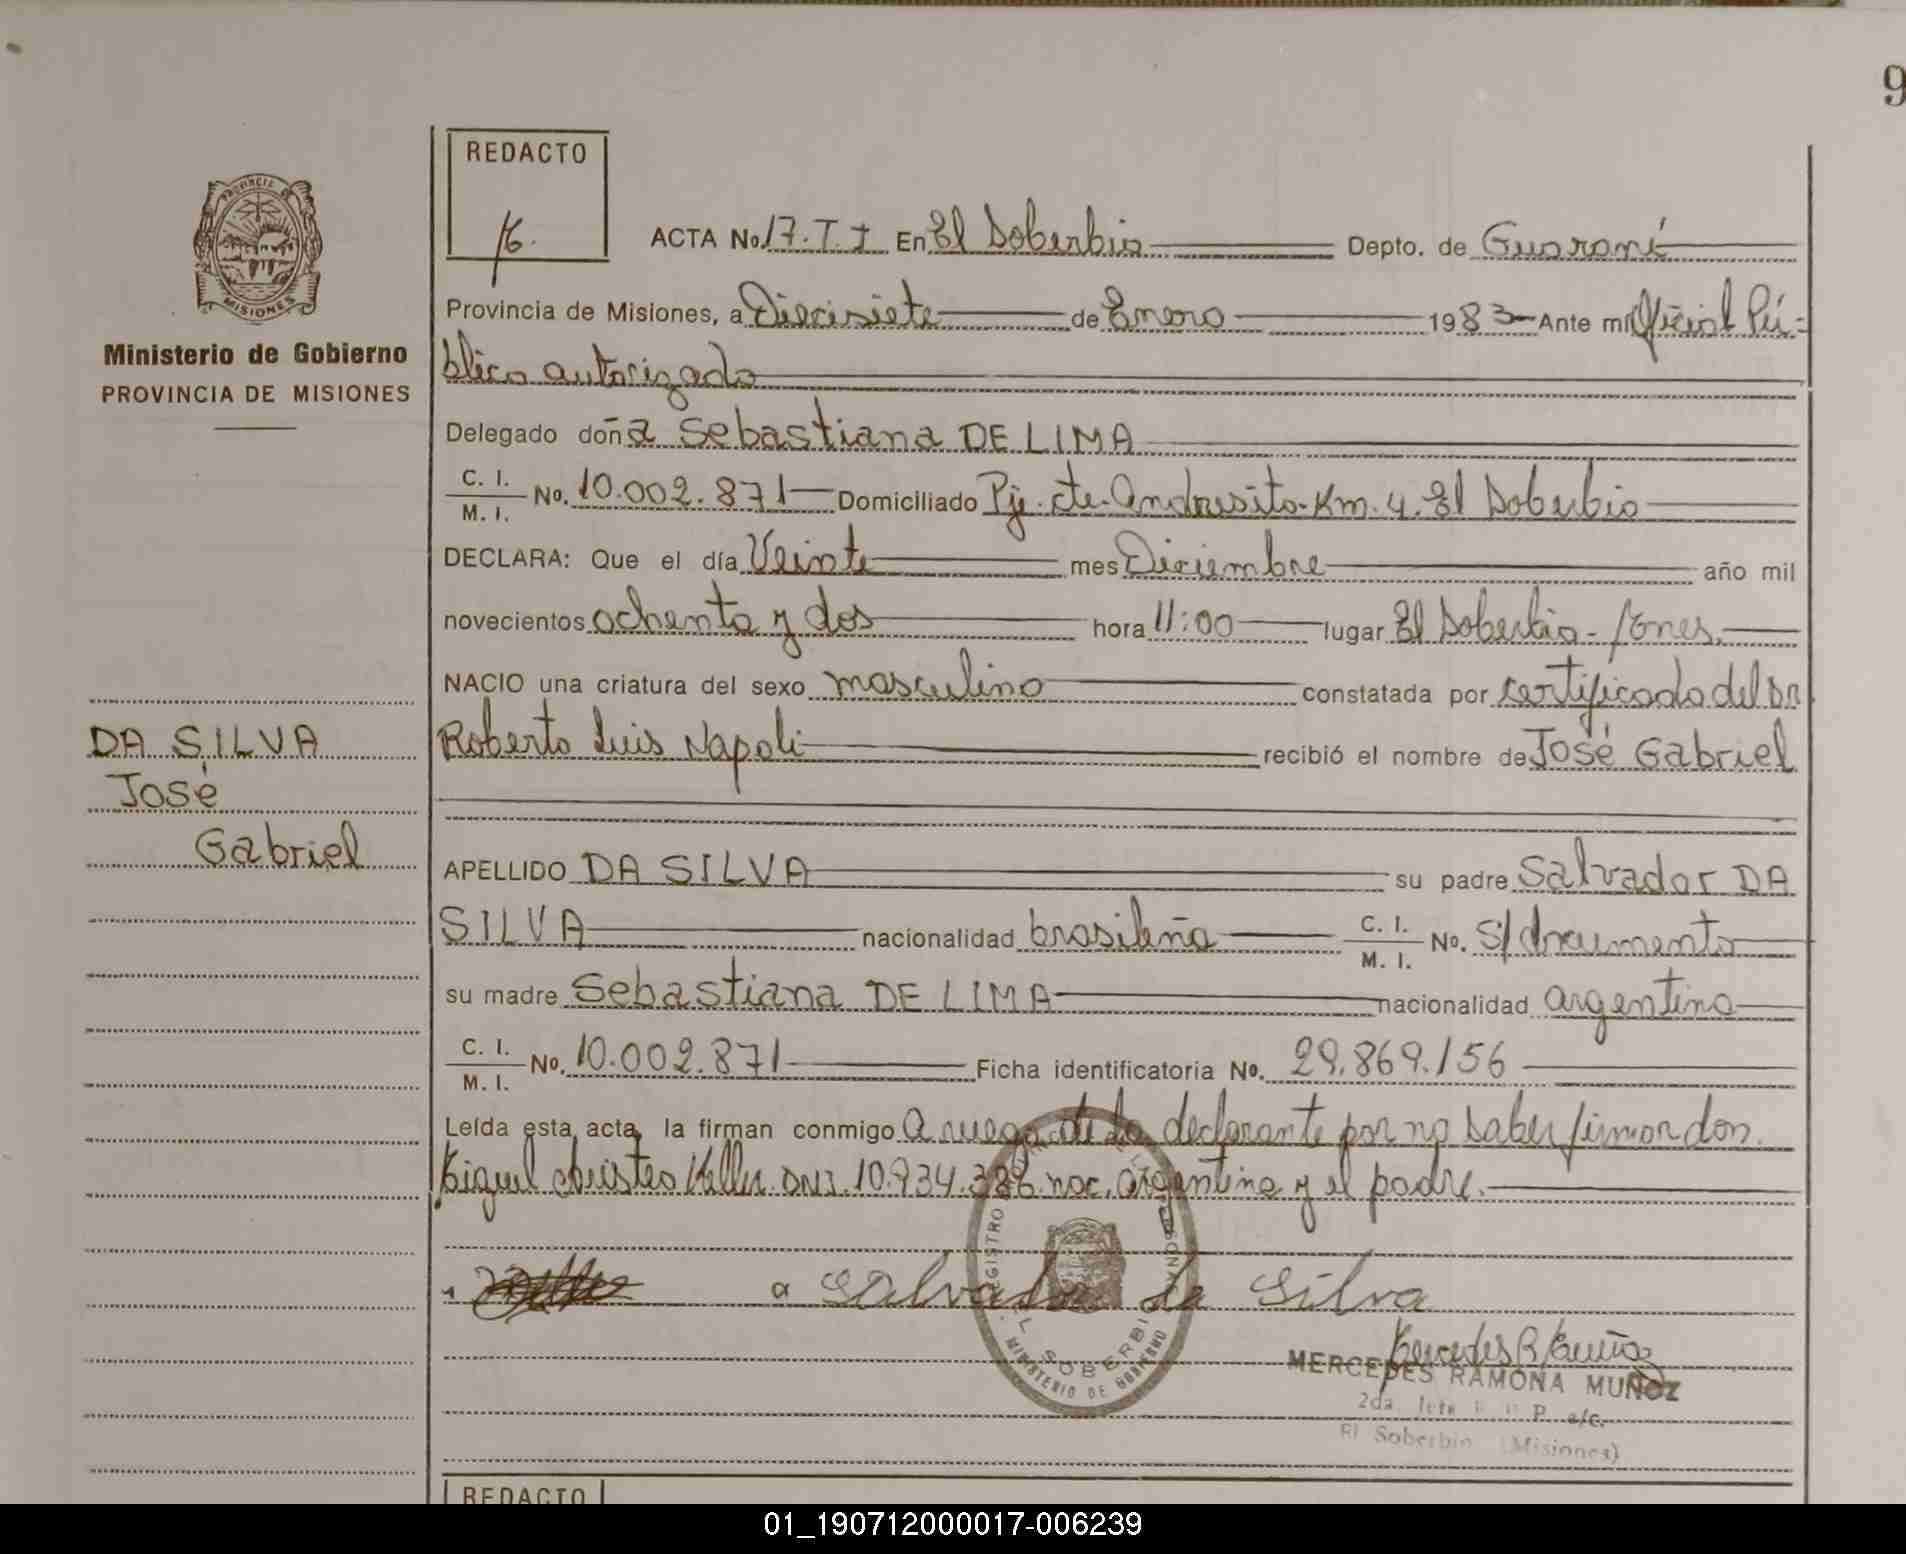 9
REDACTO
PROVINCIA DE
MISIONES
Ministerio de Gobierno
PROVINCIA DE MISIONES
ACTA No. 17. T. I En El Soberbio Depto. de Guaraní
Provincia de Misiones, a Diecisiete de Enero 1983 Ante mí Oficial Pú-
blico autorizado
Delegado doña Sebastiana DE LIMA
C. I.
M. I. No. 10.002.871 Domiciliado Pje. Cte. Andresito-Km. 4. El Soberbio
DECLARA: Que el día Veinte mes Diciembre año mil
novecientos ochenta y dos hora 11:00 lugar El Soberbio-
NACIO una criatura del sexo masculino constatada por certificado del Dr
Roberto Luis Napoli recibió el nombre de José Gabriel
DA SILVA
José
Gabriel
APELLIDO DA SILVA su padre Salvador DA
SILVA nacionalidad brasileña C. I.
M. I. No. S/documento
su madre Sebastiana DE LIMA nacionalidad argentina
C. I.
M. I. No. 10.002.871 Ficha identificatoria No. 29.869.156
Leída esta acta, la firman conmigo A ruego de la declarante por no saber firmar don
Miguel Keller DNI. 10.934.386 nac. argentina y el padre.
a Salvador da Silva
REGISTRO
EL SOBERBIO
MINISTERIO DE GOBIERNO
Mercedes R Muñoz
MERCEDES RAMONA MUÑOZ
2da. P. a/c.
El Soberbio (Misiones)
REDACTO
01_190712000017-006239